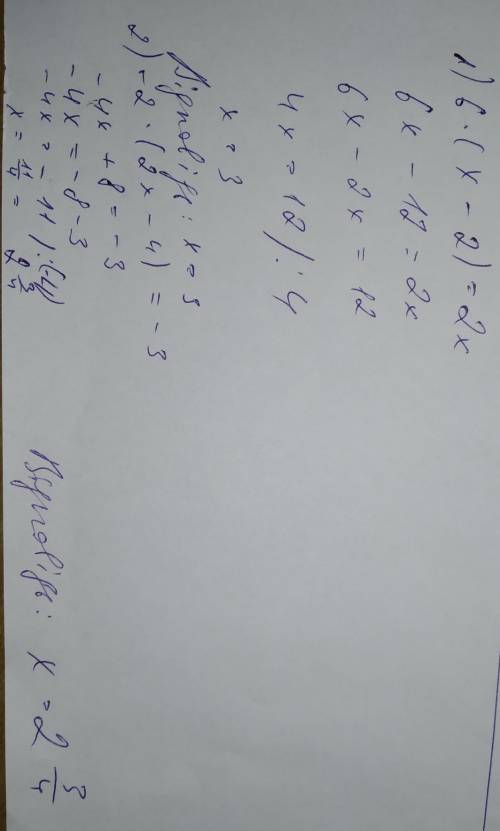 1) 6 · (x - 2) = 2x
6x - 12 = 2x
6x - 2x = 12
4x = 12 | : 4
x = 3
x = 3
2) -2 · (2x - 4) = -3
-4x + 8 = -3
-4x = -8 - 3
-4x = -11 | : (-4)
x = 11/4 = 2 3/4
x = 2 3/4